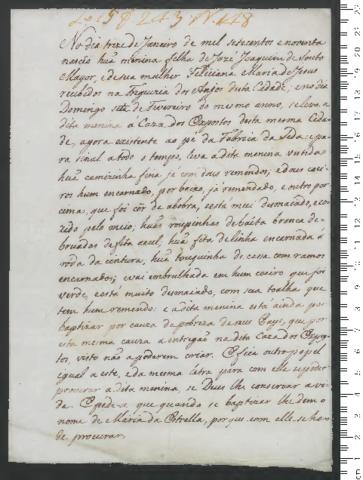 L.º 158 243 N. 448
No dia treze de Janeiro de mil setecentos e noventa
nasceo huã menina filha de Joze Joaquim de Souto
Mayor, e de sua mulher Feliciana Maria de Jesus
recebidos na freguezia dos Anjos desta Cidade, e no dia
Domingo sete de Fevereiro do mesmo anno, se leva a
dita menina à Caza dos Expostos desta mesma Cida-
de, agora existente ao pé da Fabrica da Seda: e pa-
ra sinal a todo o tempo, leva a dita menina vestida
huã camizinha fina já com dous remendos, e dous cuei-
ros hum encarnado, por baixo, já remendado, e outro por
cima, que foi côr de abobra, está mui desmaiado, e co-
zido pelo meio, huãs roupinhas de baêta branca de-
bruadas de fita azul, huã fita de linha encarnada á
roda da cintura, huã touquinha de cassa com ramos
encarnados; e vai embrulhada em hum coeiro que foi
verde, está muito desmaiado, com sua toalha que
tem hum remendo: e a dita menina está ainda por
baptizar por cauza da pobreza de seus Pays, que por
esta mesma cauza a intregão na dita Caza dos Expos-
tos, visto não a poderem crear. E fica outro papel
igual a este, e da mesma letra para com elle se poder
procurar a dita menina, se Deus lhe conservar a vi-
da. E pede-se que quando se baptizar lhe dem o
nome de Maria da Estrella, porque com elle se ha
de procurar.